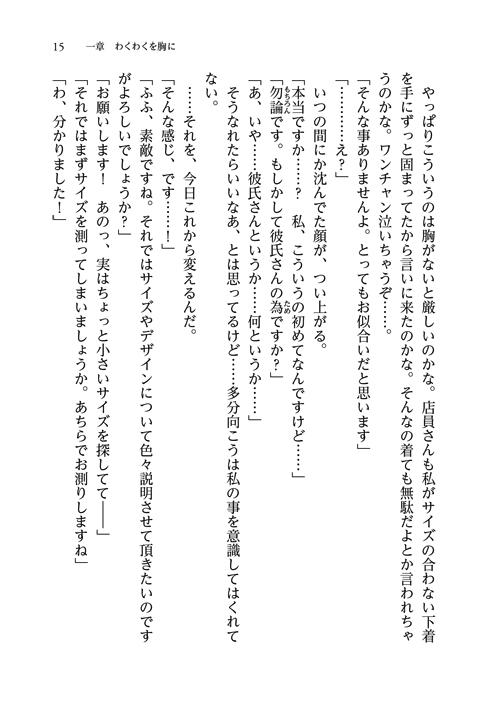 15　一章　わくわくを胸に
　やっぱりこういうのは胸がないと厳しいのかな。店員さんも私がサイズの合わない下着
を手にずっと固まってたから言いに来たのかな。そんなの着ても無駄だよとか言われちゃ
うのかな。ワンチャン泣いちゃうぞ……。
「そんな事ありませんよ。とってもお似合いだと思います」
「…………え？」
　いつの間にか沈んでた顔が、つい上がる。
「本当ですか……？　私、こういうの初めてなんですけど……」
「勿論もちろんです。もしかして彼氏さんの為ためですか？」
「あ、いや……彼氏さんというか……何というか……」
　そうなれたらいいなあ、とは思ってるけど……多分向こうは私の事を意識してはくれて
ない。
　……それを、今日これから変えるんだ。
「そんな感じ、です……！」
「ふふ、素敵ですね。それではサイズやデザインについて色々説明させて頂きたいのです
がよろしいでしょうか？」
「お願いします！　あのっ、実はちょっと小さいサイズを探してて――」
「それではまずサイズを測ってしまいましょうか。あちらでお測りしますね」
「わ、分かりました！」